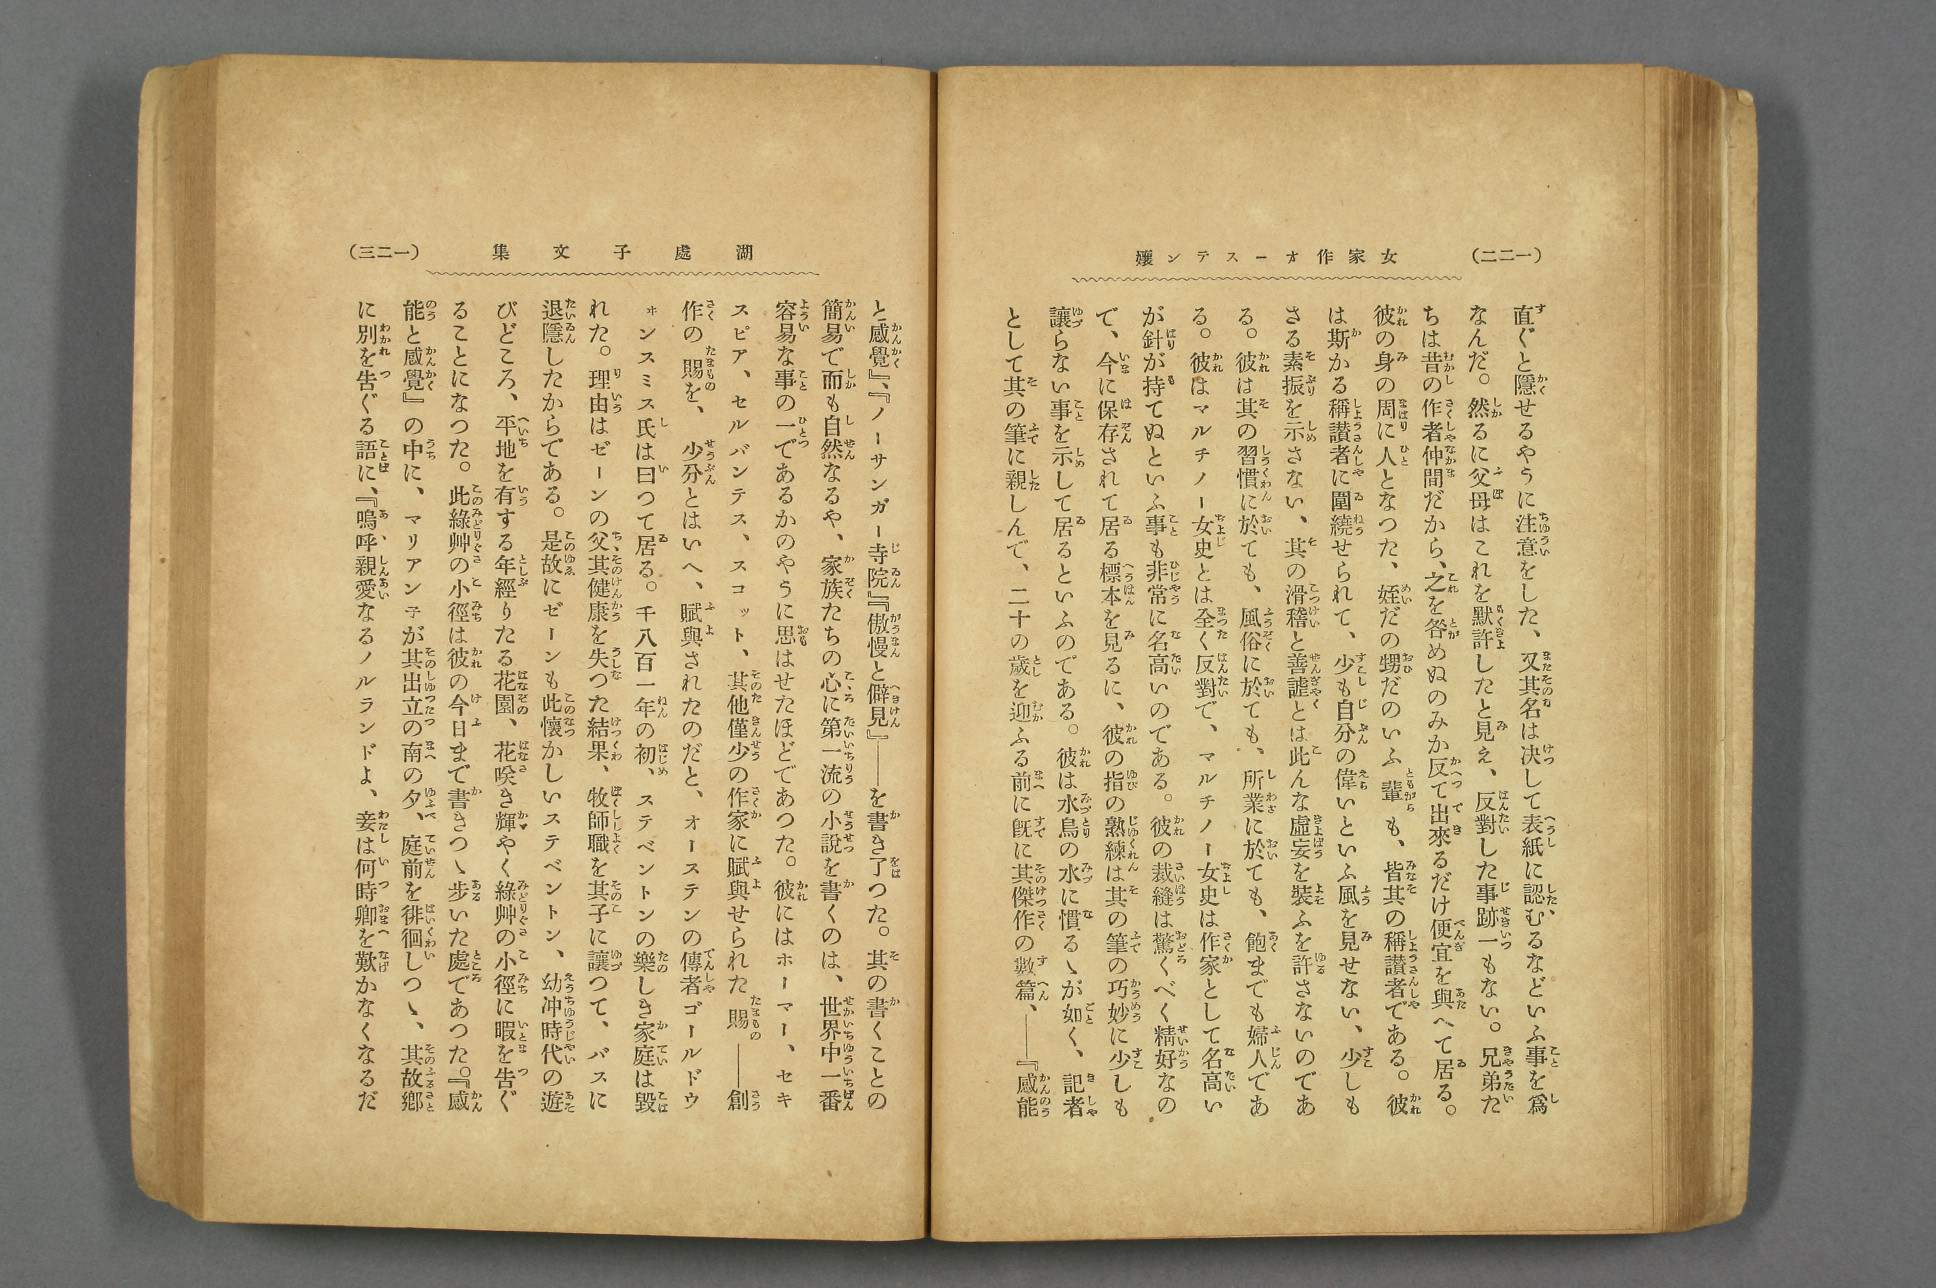 女家作オーステン孃
(一二二)
直ぐと隱せるやうに注意をした、又其名は决して表紙に認むるなどいふ事を爲
なんだ。然るに父母はこれを默許したと見え、反對した事跡一もない。兄弟た
ちは昔の作者仲間だから、之を咎めぬのみか反て出來るだけ便宜を與へて居る。
彼の身の周に人となつた、姪だの甥だのいふ輩も、皆其の稱讃者である。彼
は斯かる稱讃者に圍繞せられて、少も自分の偉いといふ風を見せない、少しも
さる素振を示さない、其の滑稽と善謔とは此んな虛妄を裝ふを許さないのであ
る。彼は其の習慣に於ても、風俗に於ても、所業に於ても、飽までも婦人であ
る。彼はマルチノー女史とは全く反對で、マルチノー女史は作家として名高い
が針が持てぬといふ事も非常に名高いのである。彼の裁縫は驚くべく精好なの
で、今に保存されて居る標本を見るに、彼の指の熟練は其の筆の巧妙に少しも
讓らない事を示して居るといふのである。彼は水鳥の水に慣るゝが如く、記者
として其の筆に親しんで、二十の歲を迎ふる前に旣に其傑作の數篇、――『感能
湖處子文集
(一二三)
と感覺』、『ノーサンガー寺院』『傲慢と僻見』――を書き了つた。其の書くことの
簡易で而も自然なるや、家族たちの心に第一流の小說を書くのは、世界中一番
容易な事の一であるかのやうに思はせたほどであつた。彼にはホーマー、セキ
スピア、セルバンテス、スコット、其他僅少の作家に賦與せられた賜――創
作の賜を、少分とはいへ、賦與されたのだと、オーステンの傳者ゴールドウ
ヰンスミス氏は曰つて居る。千八百一年の初、ステベントンの樂しき家庭は毀
れた。理由はゼーンの父其健康を失つた結果、牧師職を其子に讓つて、バスに
退隱したからである。是故にゼーンも此懷かしいステベントン、幼冲時代の遊
びどころ、平地を有する年經りたる花園、花咲き輝やく綠艸の小徑に暇を告ぐ
ることになつた。此綠艸の小徑は彼の今日まで書きつゝ步いた處であつた。『感
能と感覺』の中に、マリアンヂが其出立の南の夕、庭前を徘徊しつゝ、其故鄕
に別を告ぐる語に、『嗚呼親愛なるノルランドよ、妾は何時卿を歎かなくなるだ